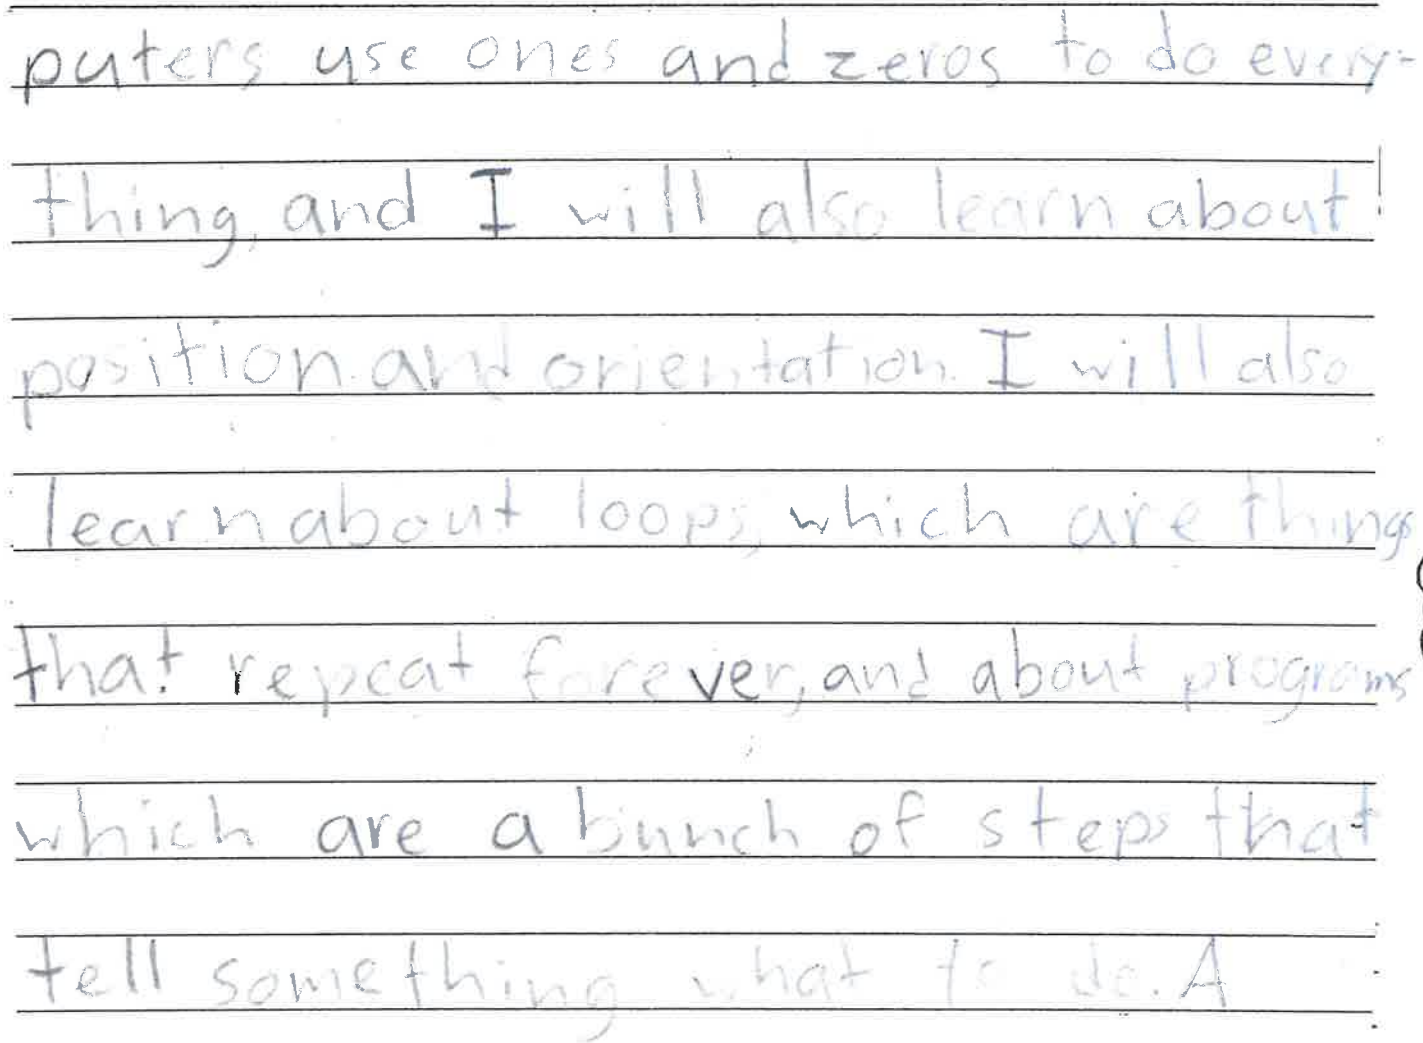 puters use ones and zeros to do every-
thing, and I will also learn about
position and orientation. I will also
learn about loops, which are things
that repeat forever, and about programs
which are a bunch of steps that
tell something what to do. A